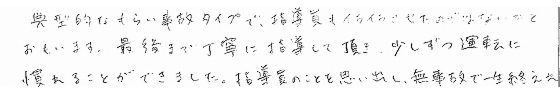 典型的なもらい事故タイプで、指導員もイライラさせたのではないかと
おもいます。最後まで丁寧に指導して頂き、少しずつ運転に
慣れることができました。指導員のことを思い出し、無事故で一生終えた